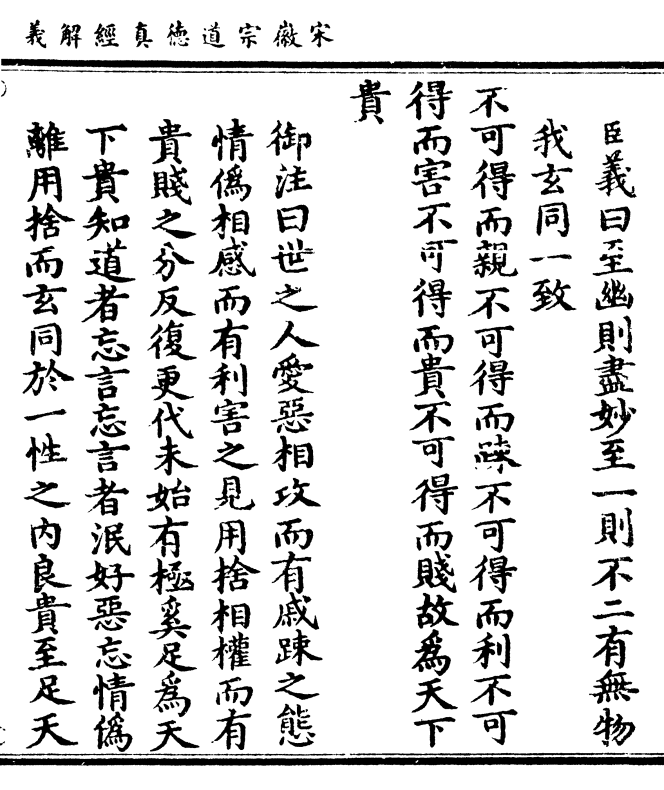 宋徽宗道德真經解義
臣義曰至幽則盡妙至一則不二有無物
我玄同一致
不可得而親不可得而踈不可得而利不可
得而害不可得而貴不可得而賤故爲天下
貴
御注曰世之人愛惡相攻而有戚踈之態
情僞相感而有利害之見用捨相權而有
貴賤之分反復更代未始有極奚足爲天
下貴知道者忘言忘言者泯好惡忘情僞
離用捨而玄同於一性之內良貴至足天